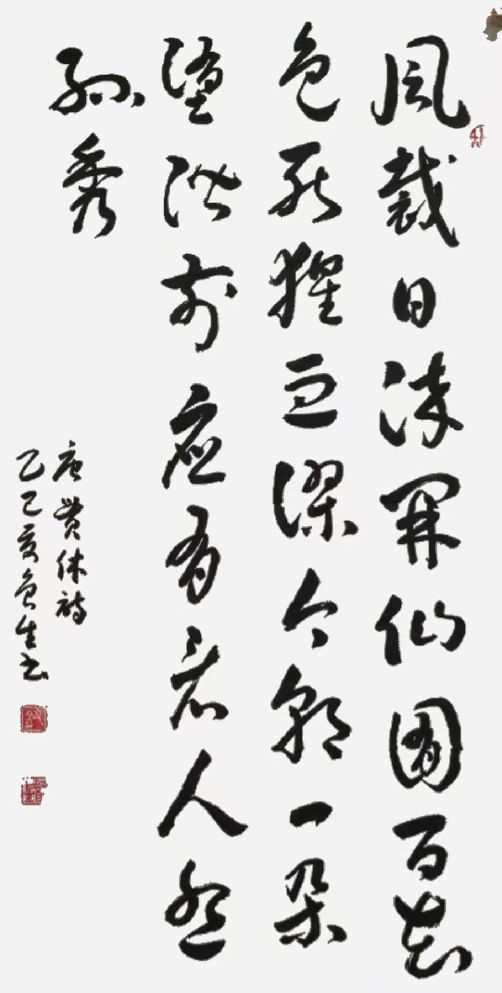 風裁日染開仙囿百花
色死猩血謬今朝一朵
墮階前應有看人怨
孫秀
唐貫休詩
乙巳夏生书